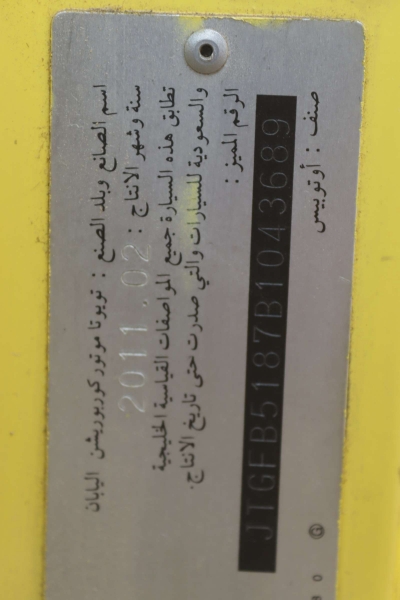 اسم الصانع وبلد الصنع : تويوتا موتور كوربوريشن اليابان
سنة وشهر الانتاج : 2011.02
تطابق هذه السيارة جميع المواصفات القياسية الخليجية
والسعودية للسيارات والتي صدرت حتى تاريخ الانتاج.
الرقم المميز :
JTGFB5187B1043689
صنف : أوتوبيس